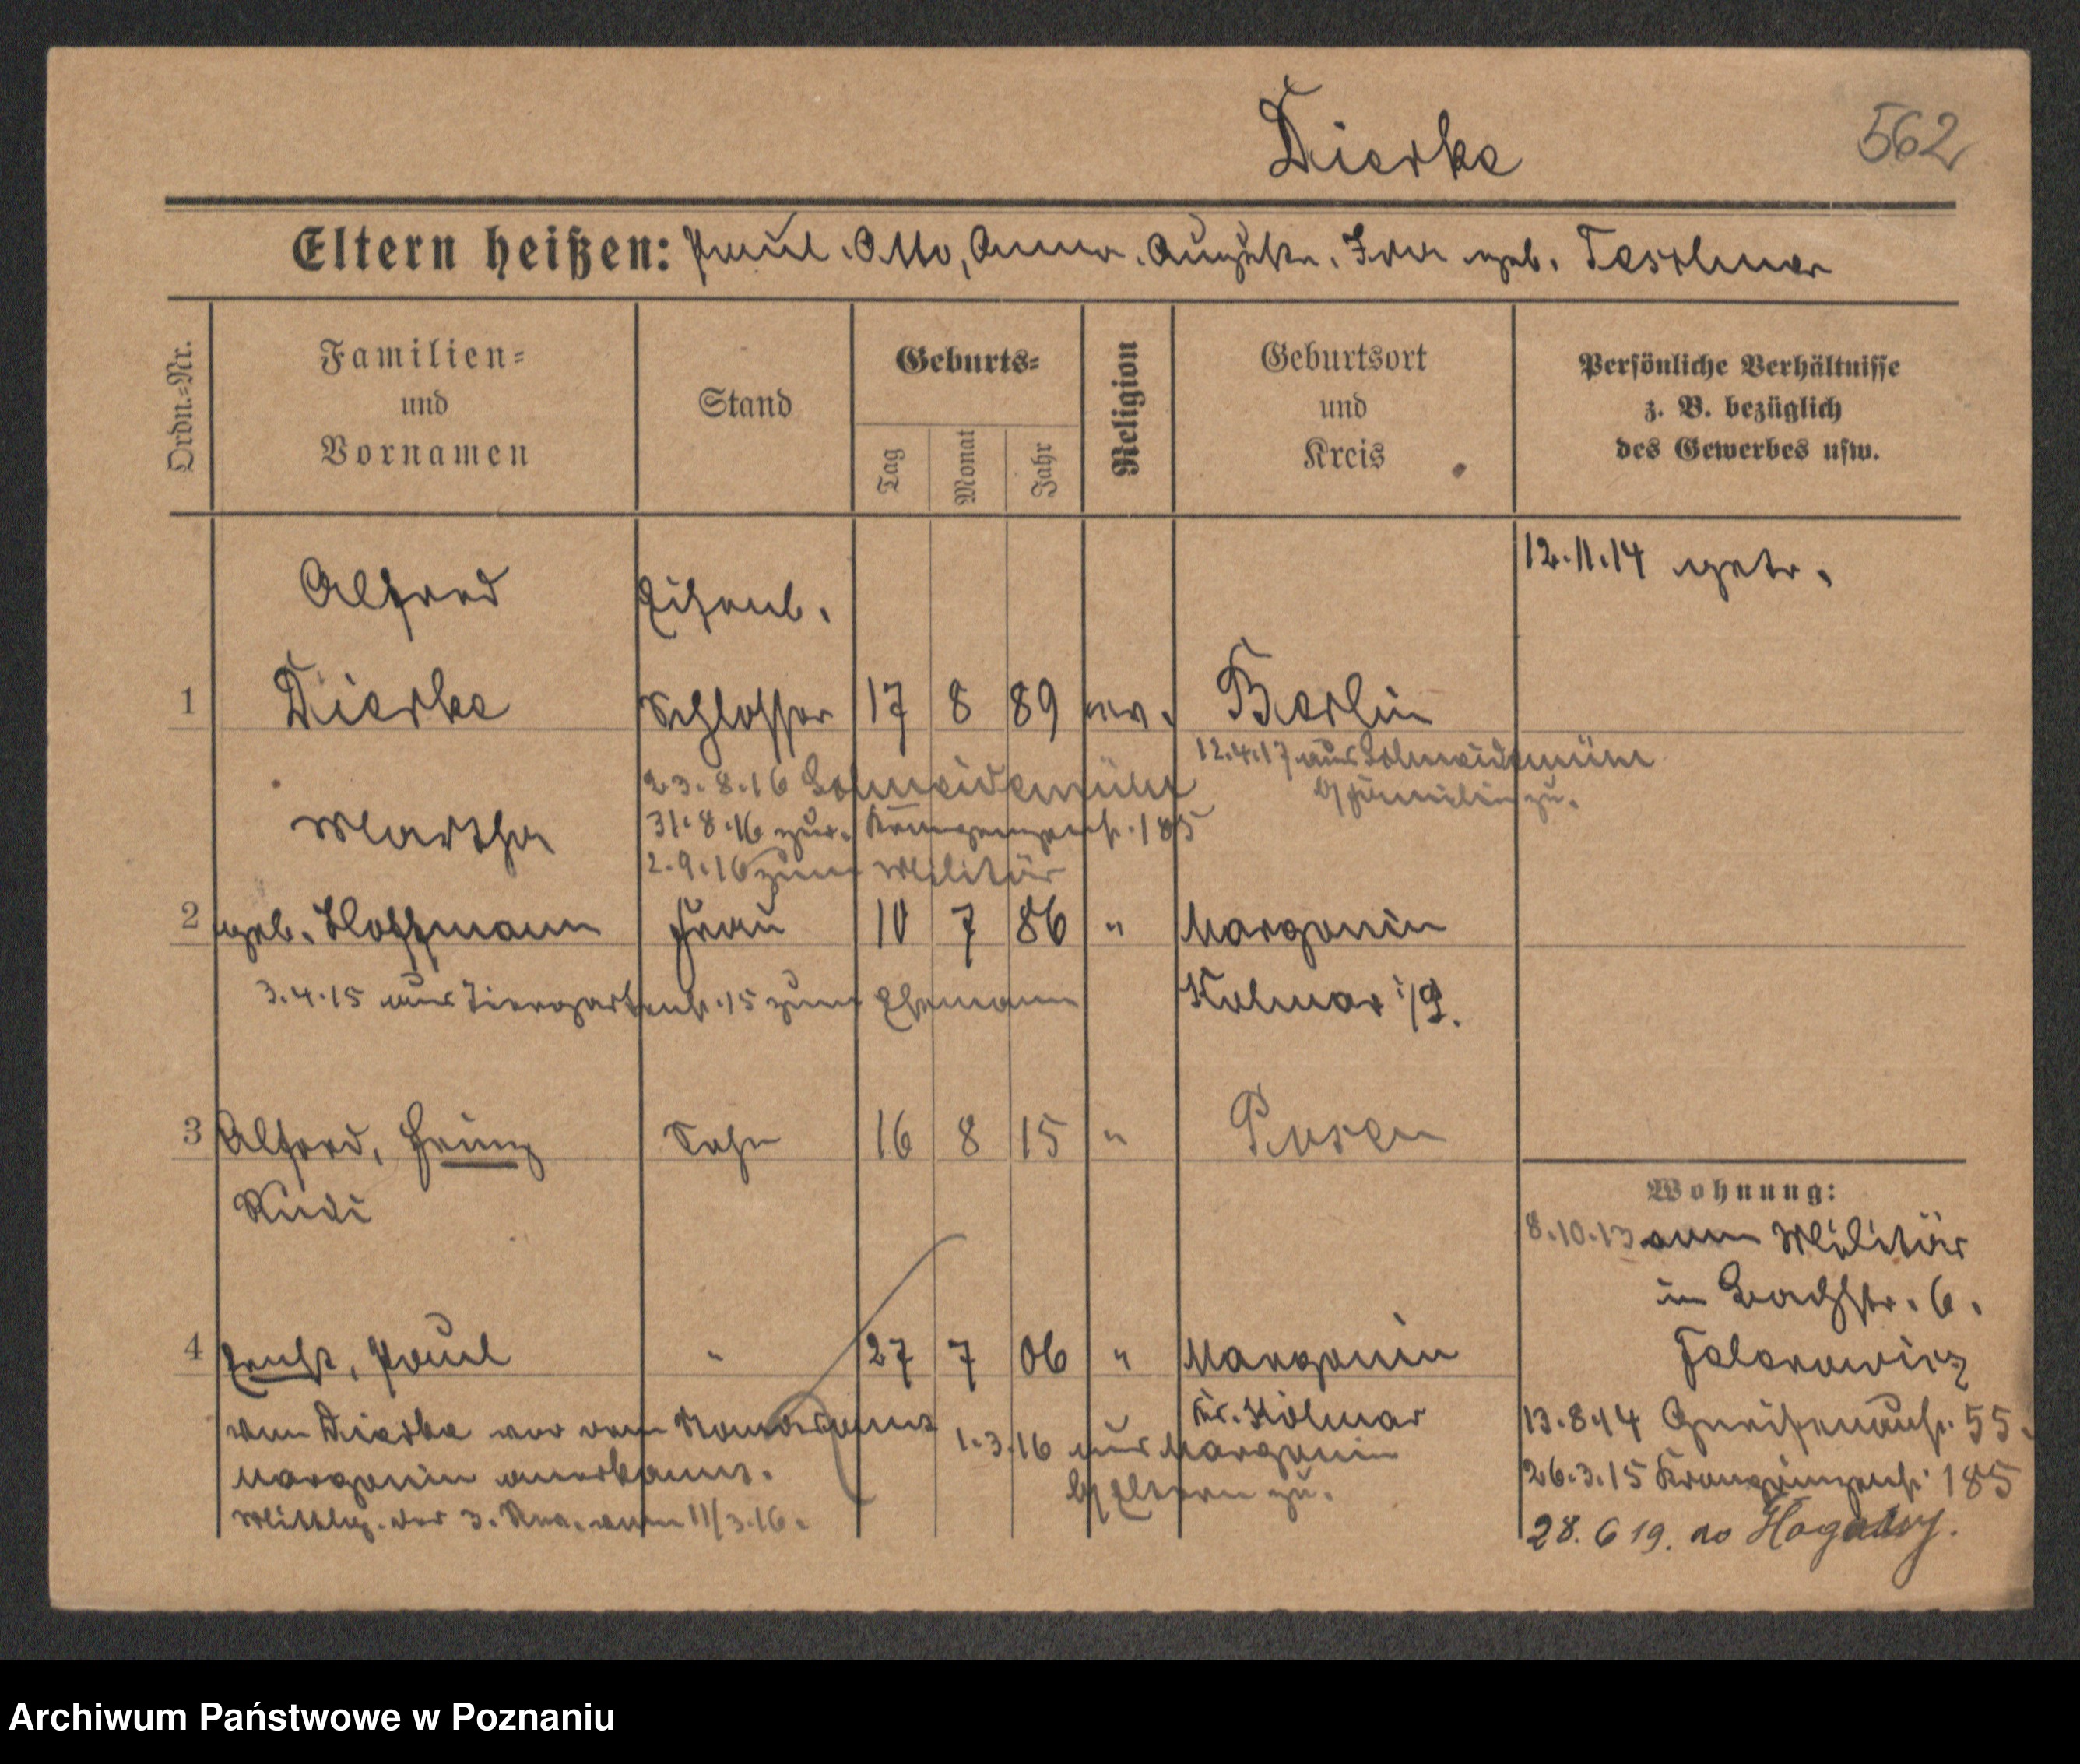 Dierke
562
Eltern heißen: Paul. Otto, Anna. Auguste. Ida geb. Teschner
Ordn.=Nr.
Familien=
und
Vornamen
Stand
Geburts=
Tag
Monat
Jahr
Religion
Geburtsort
und
Kreis
Persönliche Verhältnisse
z. B. bezüglich
des Gewerbes usw.
12.11.14 getr.
Alfred Eisenb.
1 Dierke Schlosser 17 8 89 ev. Berlin
12.4.17 aus Schneidemühl
z/Familie zu.
23.8.16 Schneidemühl
31.8.16 zur. Kronprinzenstr. 185
2.9.16 zum Militär
Martha
2 geb. Hoffmann Frau 10 7 86 " Margonin
3.4.15 aus Tiergartenstr. 15 zum Ehemann
Kolmar i/P.
3 Alfred, Heinz Sohn 16 8 15 " Posen
Rudi
Wohnung:
8.10.13 vom Militär
in Bachstr. 6.
4 Ernst, Paul " 27 7 06 " Margonin
Kr. Kolmar
von Dierke vor dem Standesamt
Margonin anerkannt.
Mittlg. der 3. vom 11/3.16.
1.3.16 aus Margonin
z/Eltern zu.
13.8.14 Gneisenaustr. 55.
26.3.15 Kronprinzenstr. 185
28. 6 19. do
Archiwum Państwowe w Poznaniu